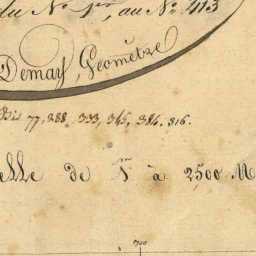 du N.º 1.er, au N.º 413
Demay, Géomètre
bis 77, 288, 333, 345, 384, 316.
elle de 1 à 2500 M
700